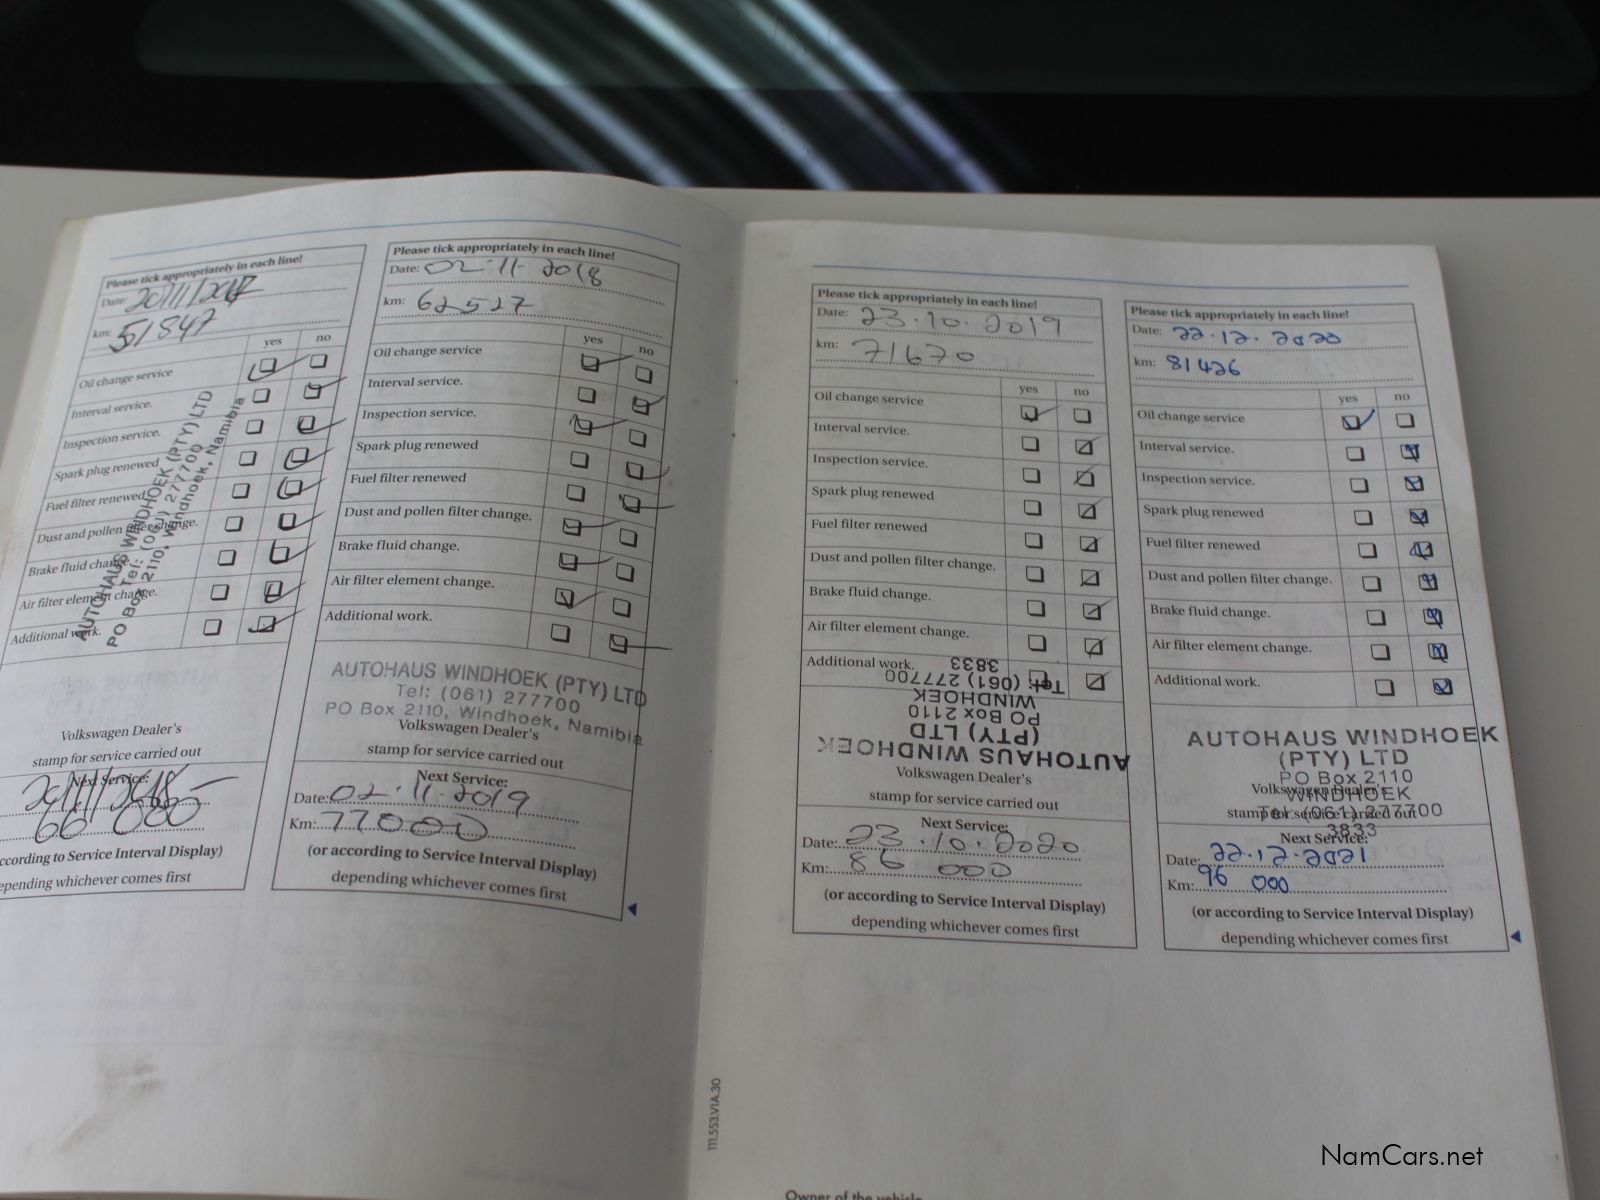 Please tick appropriately in each line!
Date: 20/11/2017
km: 51847
yes no
Oil change service
Interval service.
Inspection service.
Spark plug renewed
Fuel filter renewed
Dust and pollen filter change.
Brake fluid change.
Air filter element change.
Additional work.
AUTOHAUS WINDHOEK (PTY) LTD
Tel: (061) 277700
PO Box 2110, Windhoek, Namibia
Volkswagen Dealer's
stamp for service carried out
Next Service:
20/11/2018
66 000
ccording to Service Interval Display)
epending whichever comes first
Please tick appropriately in each line!
Date: 02.11.2018
km: 62527
yes no
Oil change service
Interval service.
Inspection service.
Spark plug renewed
Fuel filter renewed
Dust and pollen filter change.
Brake fluid change.
Air filter element change.
Additional work.
AUTOHAUS WINDHOEK (PTY) LTD
Tel: (061) 277700
PO Box 2110, Windhoek, Namibia
Volkswagen Dealer's
stamp for service carried out
Next Service:
Date: 02.11.2019
Km: 77000
(or according to Service Interval Display)
depending whichever comes first
Please tick appropriately in each line!
Date: 23.10.2019
km: 71670
yes no
Oil change service
Interval service.
Inspection service.
Spark plug renewed
Fuel filter renewed
Dust and pollen filter change.
Brake fluid change.
Air filter element change.
Additional work.
AUTOHAUS WINDHOEK
(PTY) LTD
PO Box 2110
WINDHOEK
Tel: (061) 277700
3833
Volkswagen Dealer's
stamp for service carried out
Next Service:
Date: 23.10.2020
Km: 86 000
(or according to Service Interval Display)
depending whichever comes first
Please tick appropriately in each line!
Date: 22.12.2020
km: 81426
yes no
Oil change service
Interval service.
Inspection service.
Spark plug renewed
Fuel filter renewed
Dust and pollen filter change.
Brake fluid change.
Air filter element change.
Additional work.
AUTOHAUS WINDHOEK
(PTY) LTD
PO Box 2110
WINDHOEK
Tel: (061) 277700
3833
Volkswagen Dealer's
stamp for service carried out
Next Service:
Date: 22.12.2021
Km: 96 000
(or according to Service Interval Display)
depending whichever comes first
111.553.VIA.30
Owner of the vehicle
NamCars.net